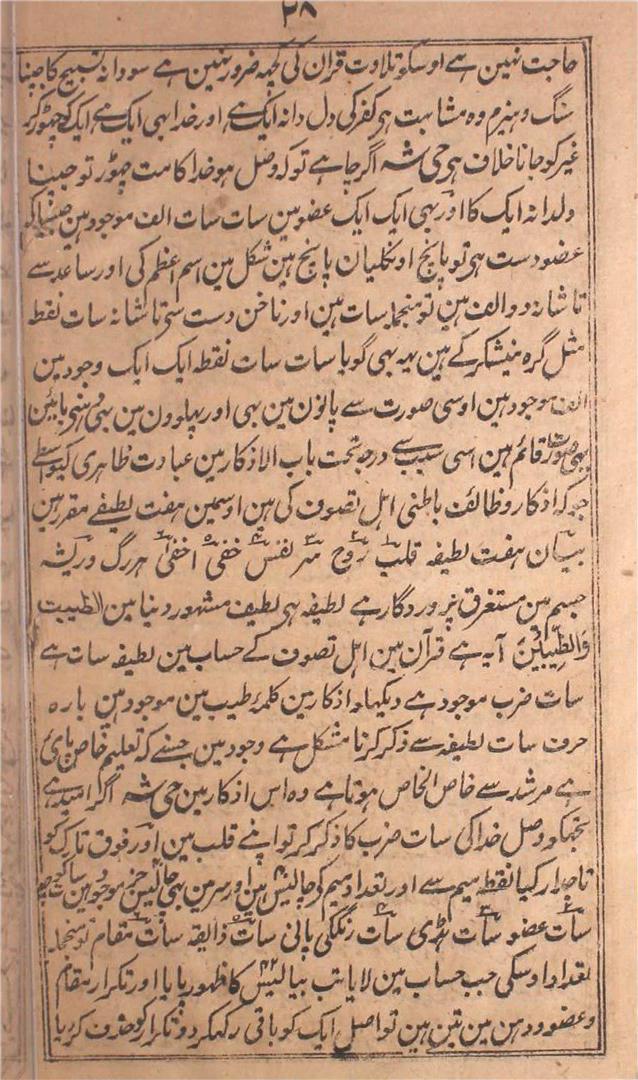 ۲۸
حاجت نہین ہے اوسکو تلاوت قران کی کچہہ ضرور نہین ہے سو دانہ تسبیح کا جپنا
سنگ و ہیزم وہ مشابہت ہی کفر کی دل دانہ ایک ہے اور خدا بہی ایک ہے ایک کو چہوڑ کر
غیر کو جانا خلاف ہی جی شہ اگر چاہے تو کہ وصل ہو خدا کا مت چہوڑ تو جپنا
ولدانہ ایک کا اور بہی ایک ایک عضو مین سات سات الف موجود ہین
عضو دست ہی تو پانچ اونگلیان پانچ ہین شکل مین اسم اعظم کی اور ساعد سے
تا شانہ دو الف ہین تو منجملہ سات ہین اور ناخن دست سی تا شانہ سات نقط
مثل گرہ نیشکر کے ہین یہہ بہی گویا سات سات نقطہ ایک ایک وجود مین
الف موجود ہین اوسی صورت سے پانون مین بہی اور پہلوون مین بہی
بہی صورت قائم ہین اسی سبب سے درجہ تحت باب الاذکار مین عبادت ظاہری کیواسطے
جو کہ اذکار و ظائف باطنی اہل تصوف کی ہین اوسمین ہفت لطیفے مقرر ہین
بیان ہفت لطیفہ قلب روح سر نفس خفی اخفی ہر رگ و ریشہ
جسم مین مستغرق پروردگار ہے لطیفہ ہی لطیف مشہور دنیا مین الطیبت
وَالطَّيِّبِينَ آیہ ہے قرآن مین اہل تصوف کے حساب مین لطیفہ سات ہے
سات ضرب موجود ہے دیکہا و اذکار مین کلمۂ طیب مین موجود ہین بارہ
حرف سات لطیفہ سے ذکر کرنا مشکل ہے وجود مین جسنے کہ تعلیم خاص پای
ہے مرشد سے خاص الخاص ہوتا ہے وہ اس اذکار مین جی شہ اگر امید ہے
تجہکو وصل خدا کی سات ضرب کا ذکر کر تو اپنے قلب مین اور فوق تارک کو
تاجدار کیا نقط میم سے اور تعداد میم کو چالیس ہین اور سر مین بہی چالیس جز موجود ہین
سات عضو سات ہڈی سات رنگ کی پانی سات ذایقہ سات مقام تو منجملہ
تعداد اوسکی جب حساب مین لایا تب بیالیس کا ظہور پایا اور تکرار مقام
و عضو و دہن مین تین ہین تو اصل ایک کو باقی رکہکر دو تکرار کو حذف کر یا